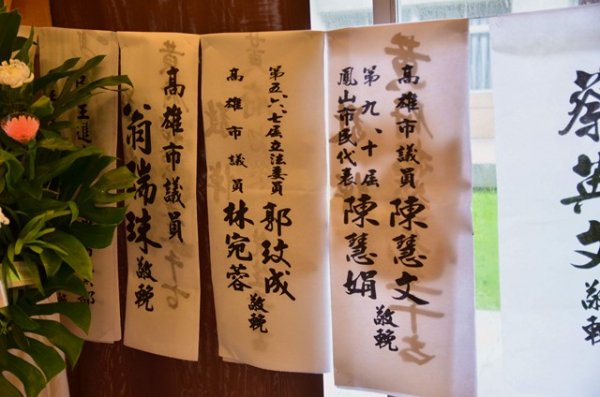 蔡英文 敬輓
高雄市議員 陳慧文
第九、十屆
鳳山市民代表 陳慧娟
敬輓
第五六七屆立法委員 郭玟成
高雄市議員 林宛蓉
敬輓
高雄市議員
翁瑞珠 敬輓